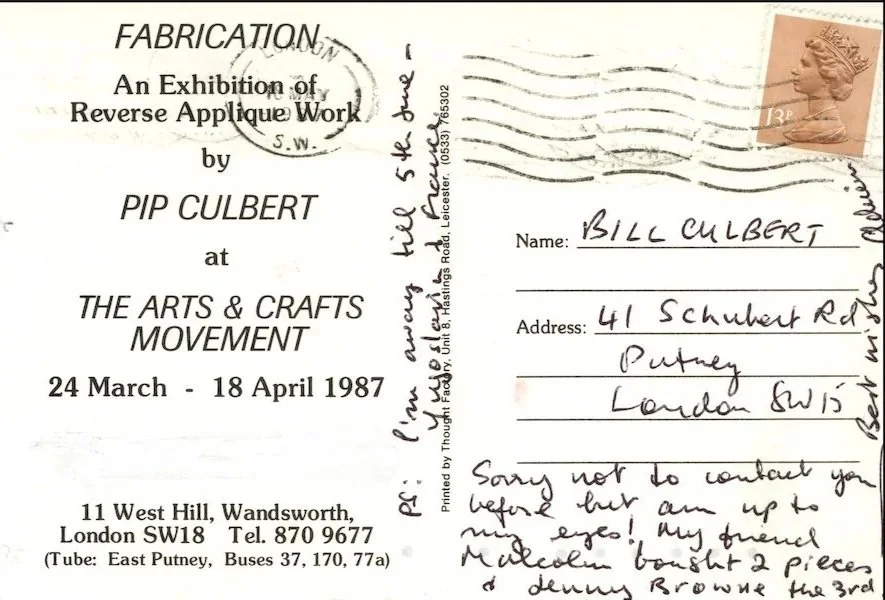 FABRICATION
An Exhibition of
Reverse Applique Work
by
PIP CULBERT
at
THE ARTS & CRAFTS
MOVEMENT
24 March - 18 April 1987
11 West Hill, Wandsworth,
London SW18 Tel. 870 9677
(Tube: East Putney, Buses 37, 170, 77a)
LONDON
MAY
S.W.
PS: I'm away till 5th June –
Yugoslavia & France.
Printed by Thought Factory, Unit 8, Hastings Road, Leicester. (0533) 765302
13P
Name: BILL CULBERT
Address: 41 Schubert Rd
Putney
London SW15
Sorry not to contact you
before but am up to
my eyes! My friend
Malcolm bought 2 pieces
& Jenny Browne the 3rd
Best wishes